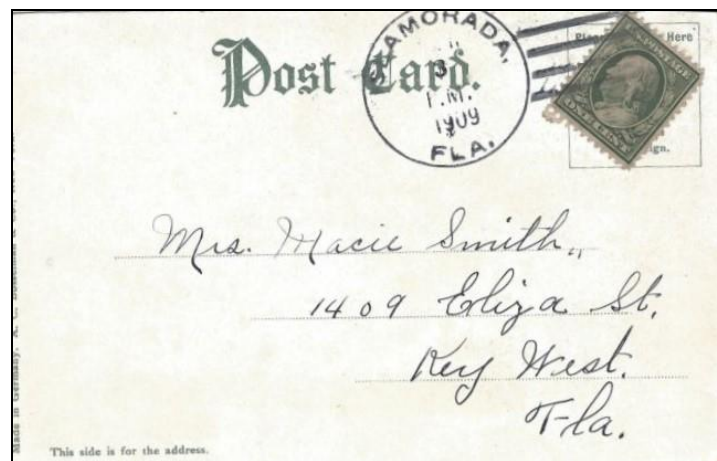 Post Card.
AMORADA,
3
P.M.
1909
FLA.
Here
POSTAGE
ONE CENT
Mrs. Macie Smith,,
1409 Eliza St,
Key West.
Fla.
Made in Germany. A. C.
This side is for the address.